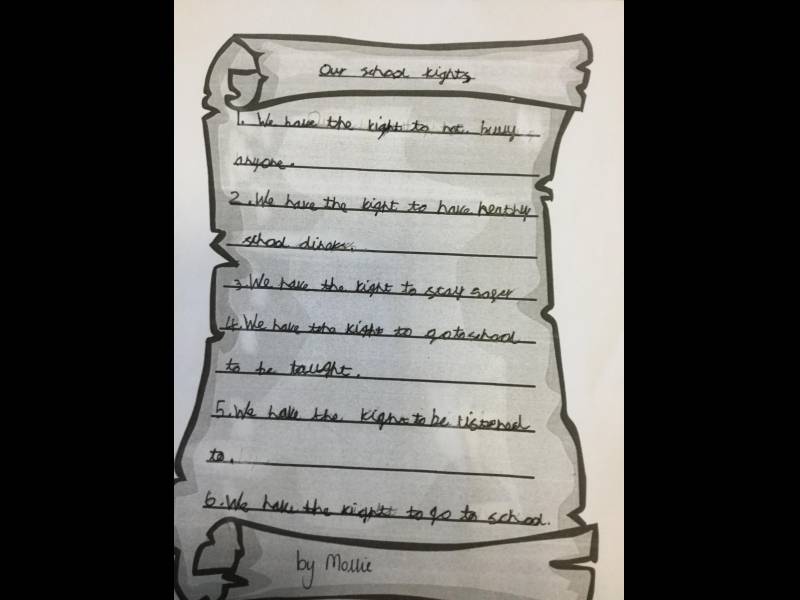 Our school rights
1. We have the right to not bully
anyone.
2. We have the right to have healthy
school diners.
3. We have the right to stay safer
4. We have the right to go to school
to be taught.
5. We have the right to be listened
to.
6. We have the right to go to school.
by Mollie